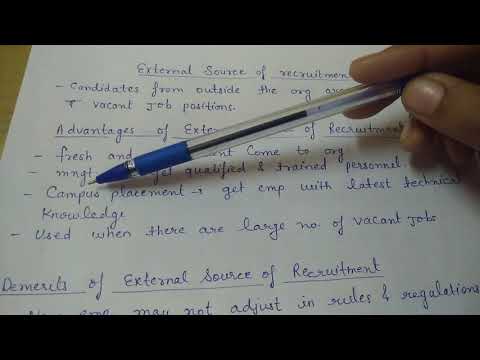 External Source of recruitment
- Candidates from outside the org
vacant job positions.
Advantages of External of Recruitment
- fresh and come to org
- mngt. get qualified & trained personnel
- Campus placement → get emp with latest technical
Knowledge
- Used when there are large no. of vacant jobs
Demerits of External Source of Recruitment
may not adjust in rules & regulations